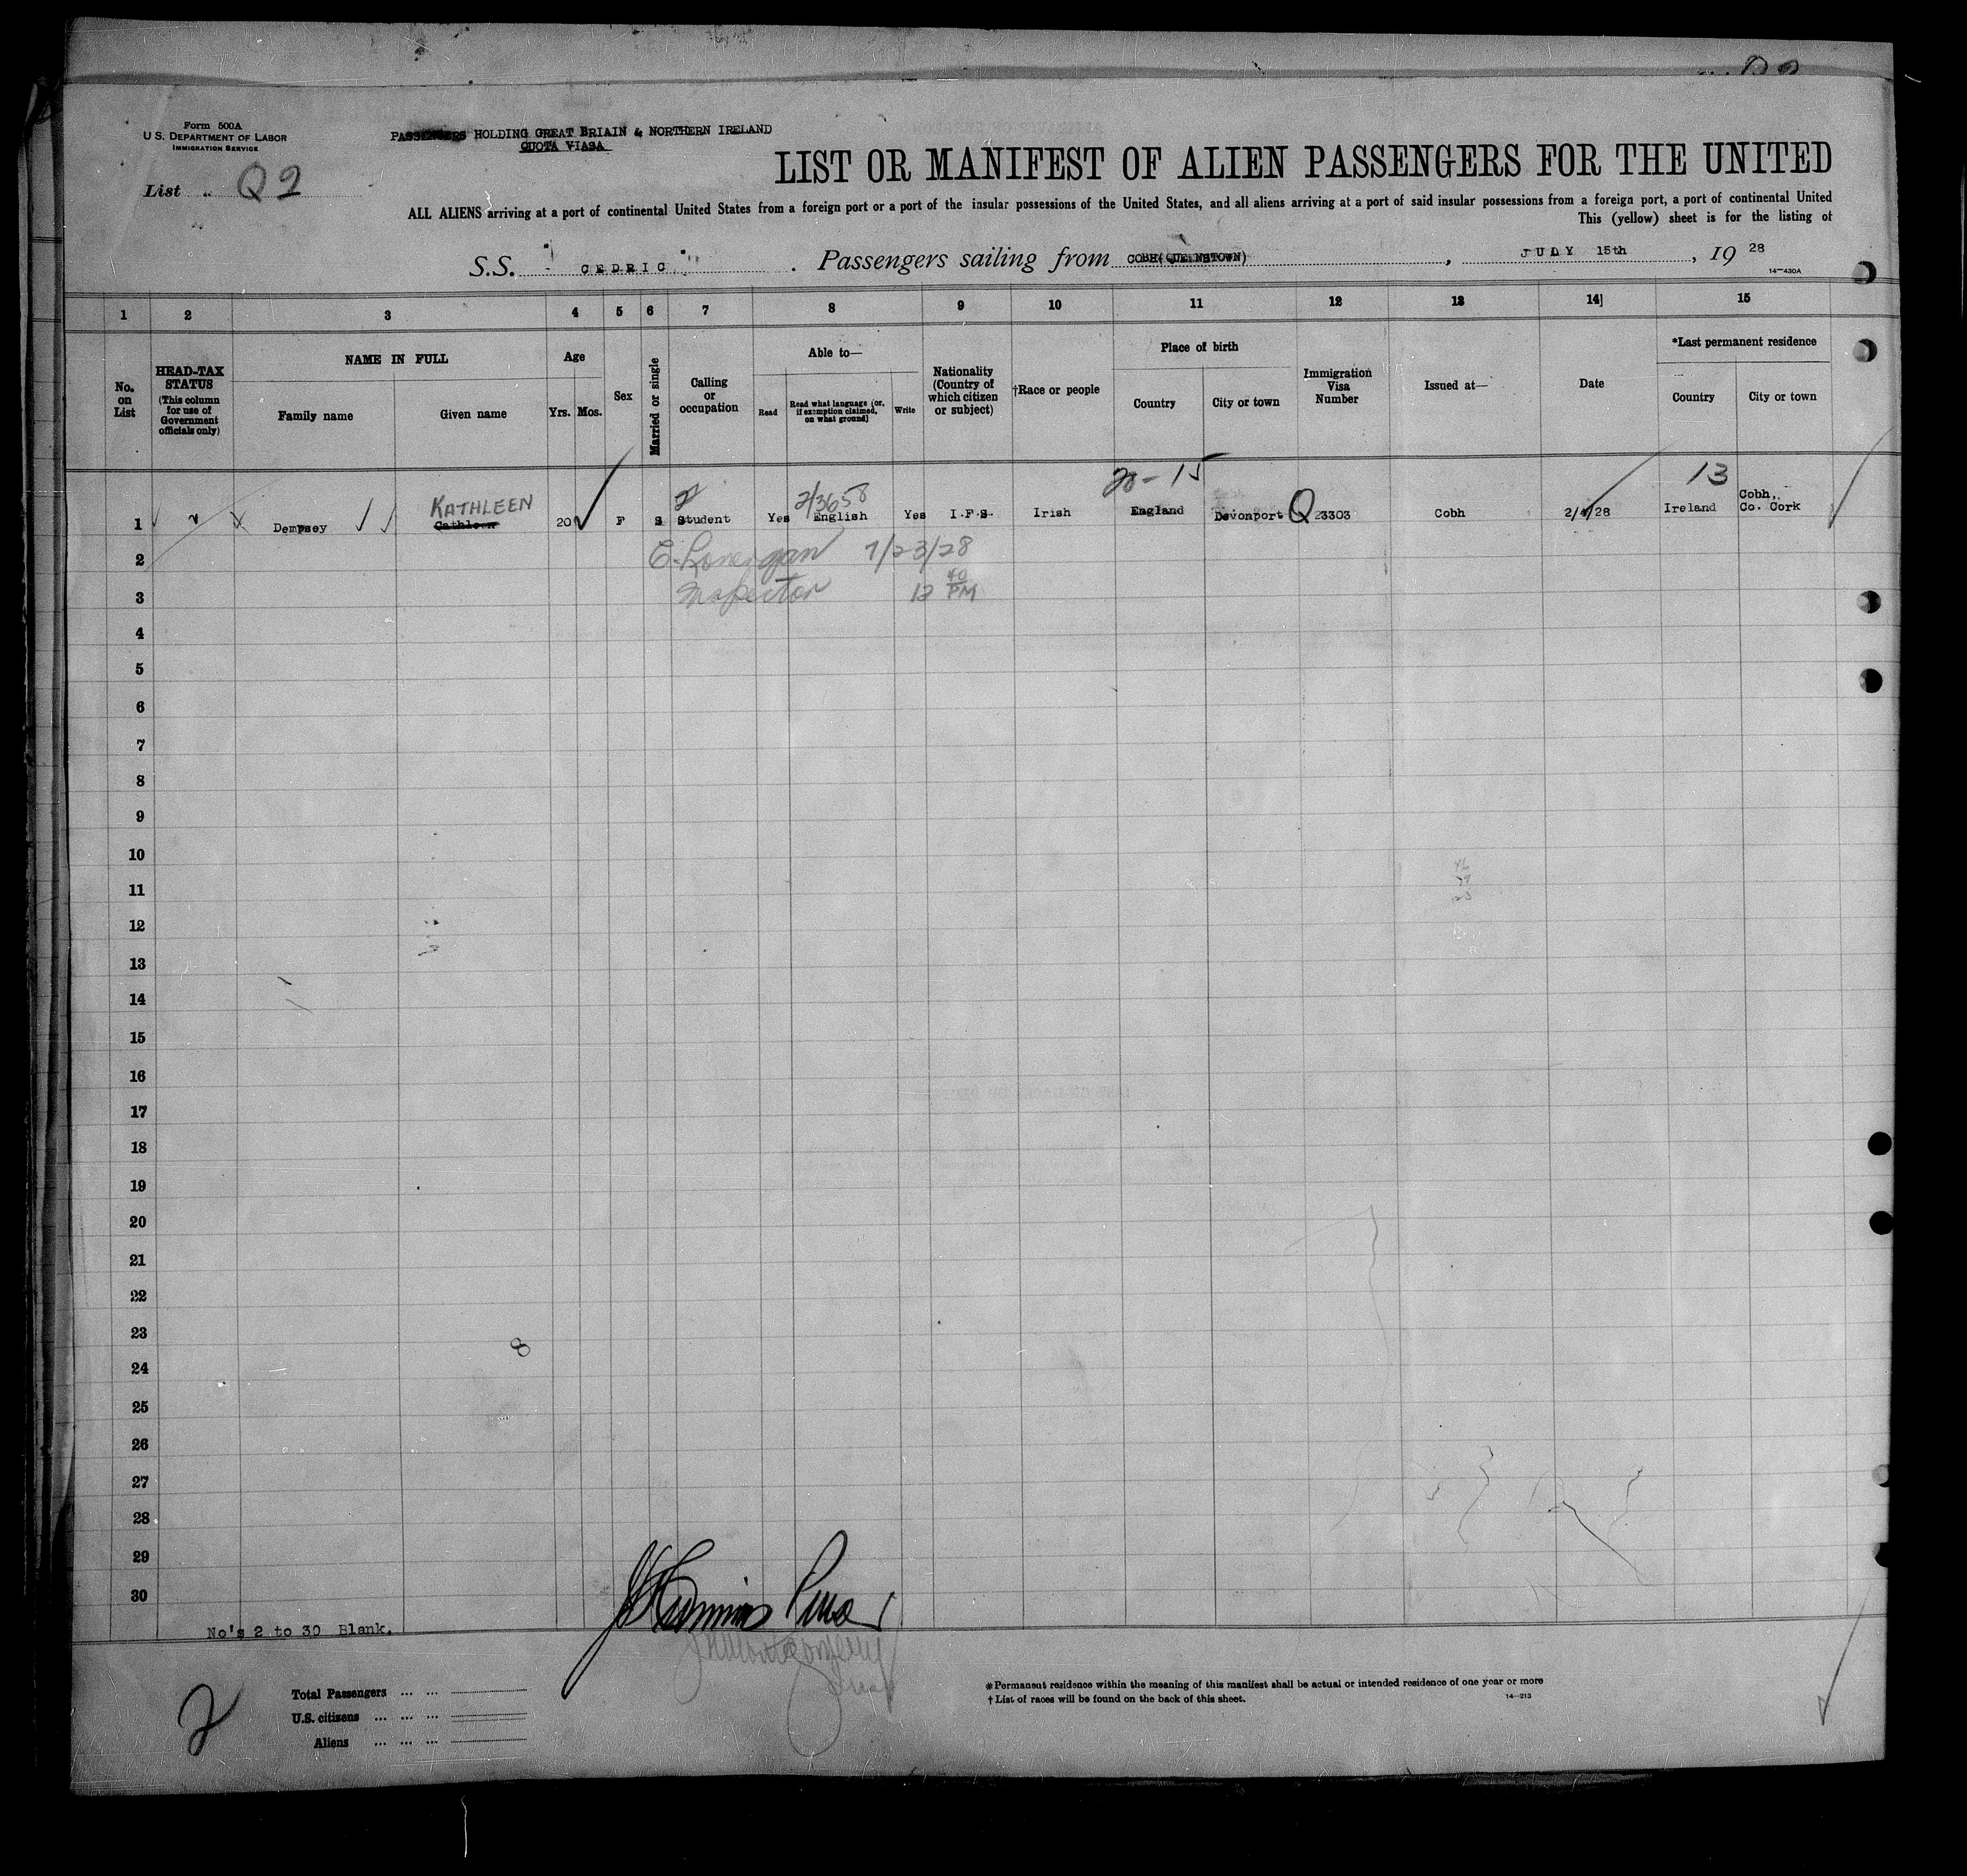 Form 500A
U. S. DEPARTMENT OF LABOR
IMMIGRATION SERVICE
PASSENGERS HOLDING GREAT BRIAIN & NORTHERN IRELAND
QUOTA VIASA
List Q 2
LIST OR MANIFEST OF ALIEN PASSENGERS FOR THE UNITED
ALL ALIENS arriving at a port of continental United States from a foreign port or a port of the insular possessions of the United States, and all aliens arriving at a port of said insular possessions from a foreign port, a port of continental United
This (yellow) sheet is for the listing of
S.S. " CEDRIC " . Passengers sailing from COBH(QUEENSTOWN) , JULY 15th , 19 28
14—430A
1 2 3 4 5 6 7 8 9 10 11 12 13 14 15
No. on List
HEAD-TAX STATUS (This column for use of Government officials only)
NAME IN FULL
Family name Given name
Age
Yrs. Mos.
Sex
Married or single
Calling or occupation
Able to—
Read Read what language (or, if exemption claimed, on what ground) Write
Nationality (Country of which citizen or subject)
†Race or people
Place of birth
Country City or town
Immigration Visa Number
Issued at—
Date
*Last permanent residence
Country City or town
20-15 13
KATHLEEN 2/3658
1 Dempsey Cathleen 20 F S Student Yes English Yes I.F.S. Irish England Devonport Q 23303 Cobh Ireland Cobh, Co. Cork
2 C. Lonergan 7/23/28
3 Inspector 12 40 PM
4
5
6
7
8
9
10
11
12
13
14
15
16
17
18
19
20
21
22
23
8
24
25
26
27
28
29
30
No's 2 to 30 Blank.
2
Total Passengers ... ...
U.S. citizens ... ... ...
Aliens ... ... ...
*Permanent residence within the meaning of this manifest shall be actual or intended residence of one year or more
† List of races will be found on the back of this sheet.
14—213